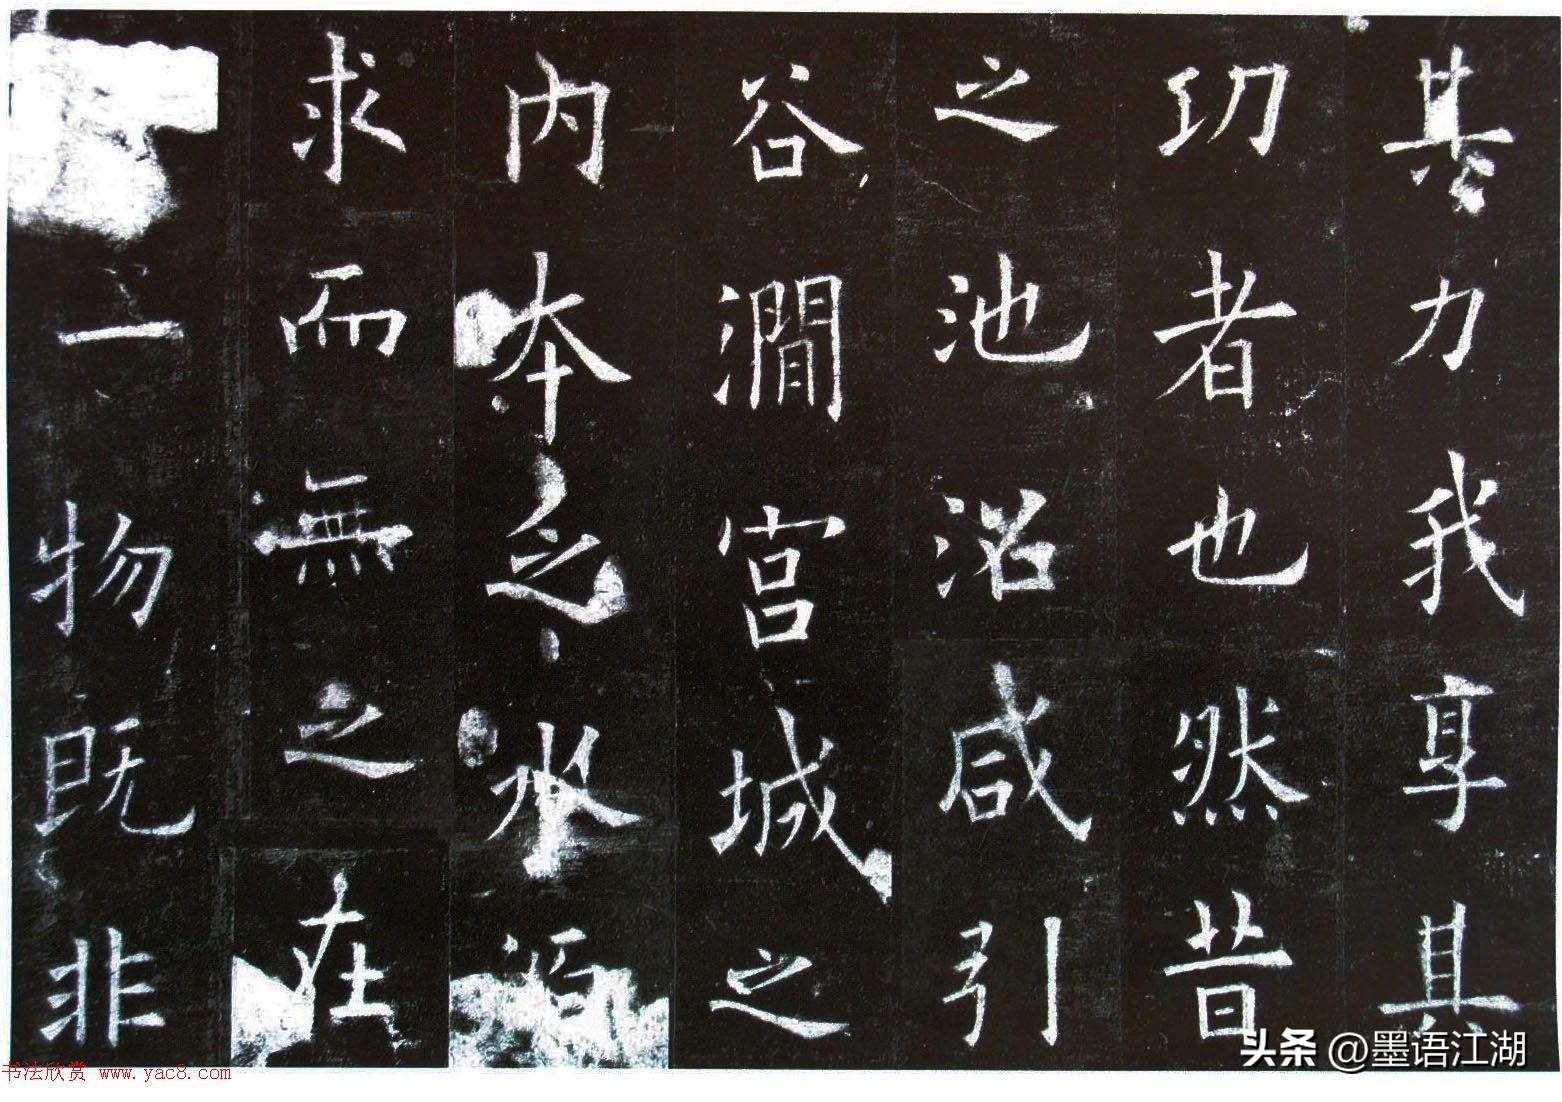 其力我享其
功者也然昔
之池沼咸引
谷澗宮城之
内本乏水源
求而無之在
一物既非
头条 @墨语江湖
书法欣赏 www.yac8.com